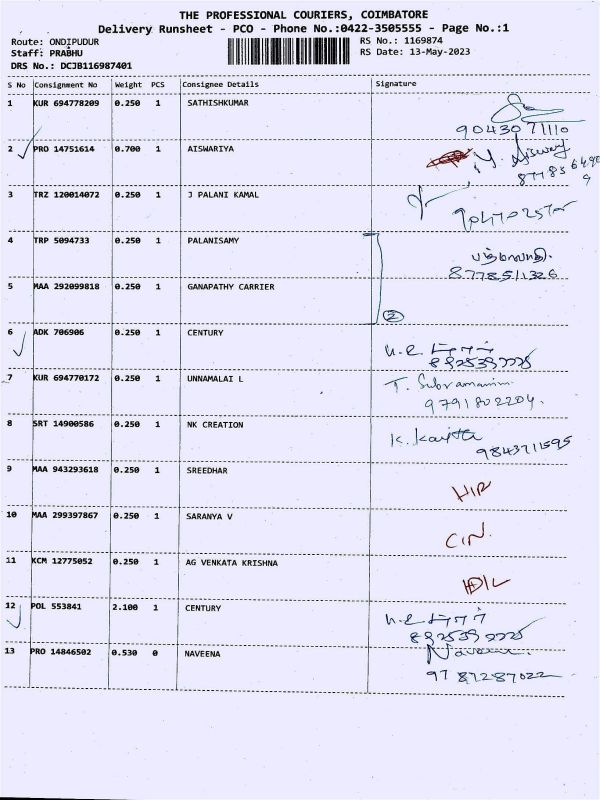 THE PROFESSIONAL COURIERS, COIMBATORE
Delivery Runsheet - PCO - Phone No.:0422-3505555 - Page No.:1
Route: ONDIPUDUR RS No.: 1169874
Staff: PRABHU RS Date: 13-May-2023
DRS No.: DCJB116987401
S No Consignment No Weight PCS Consignee Details Signature
1 KUR 694778209 0.250 1 SATHISHKUMAR
9043071110
2 PRO 14751614 0.700 1 AISWARIYA
3 TRZ 120014072 0.250 1 J PALANI KAMAL
4 TRP 5094733 0.250 1 PALANISAMY
8778511326
5 MAA 292099818 0.250 1 GANAPATHY CARRIER
2
6 ADK 706906 0.250 1 CENTURY
7 KUR 694770172 0.250 1 UNNAMALAI L T. Subramanim
9791802204.
8 SRT 14900586 0.250 1 NK CREATION
9843711595
9 MAA 943293618 0.250 1 SREEDHAR
10 MAA 299397867 0.250 1 SARANYA V
11 KCM 12775052 0.250 1 AG VENKATA KRISHNA
12 POL 553841 2.100 1 CENTURY
13 PRO 14846502 0.530 0 NAVEENA
9787287022